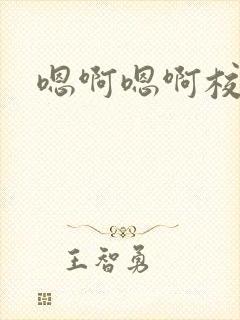 嗯啊嗯啊校
王智勇